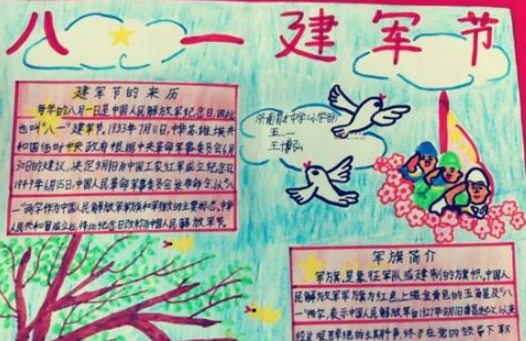 八一建军节
建军节的来历
每年的八月一日是中国人民解放军纪念日,因此
也叫“八一”建军节。1933年7月11日,中华苏维埃共
和国临时中央政府根据中央革命军事委员会6月
30日的建议,决定8月1日为中国工农红军成立纪念日。
1949年6月15日,中国人民革命军事委员会发布命令,以“八
一”两字作为中国人民解放军军旗和军徽的主要标志。中华
人民共和国成立后,将此纪念日改称为中国人民解放军建军节。
济南育才中学(小学部)
五
王博
军旗简介
军旗,是象征军队或建制的旗帜,中国人
民解放军军旗为红色,上缀金黄色的五角星及“八
一”两字,表示中国人民解放军自1927年8月1日南昌起义以来